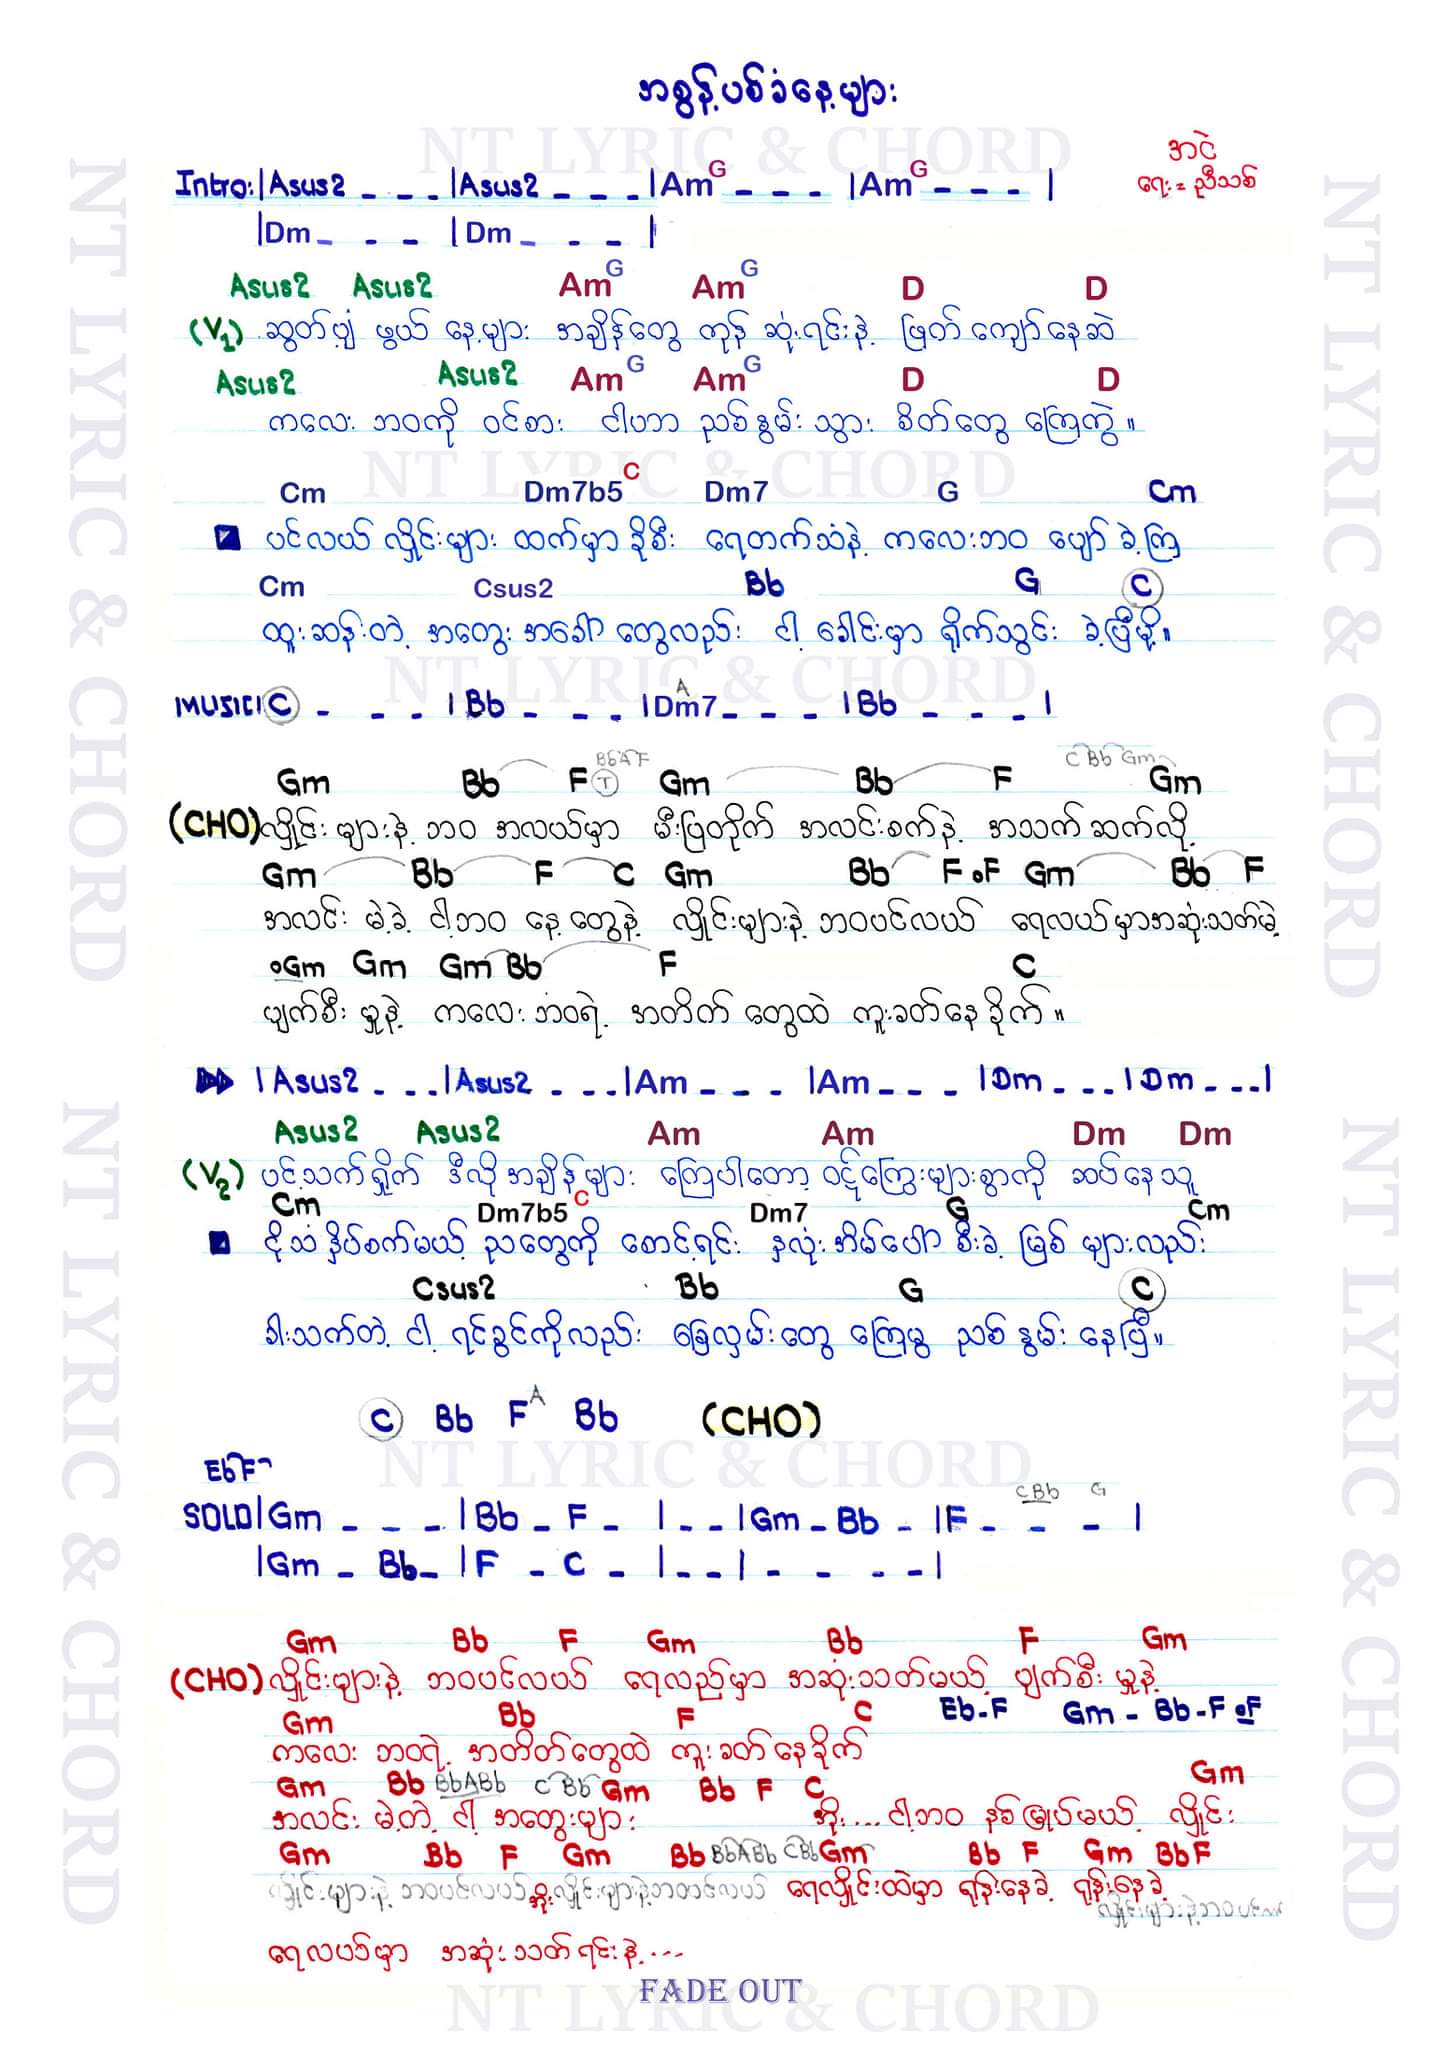 အစွန့်ပစ်ခံနေ့များ
NT LYRIC & CHORD
အငဲ
ရေး = ညီသစ်
Intro: |Asus2 _ _ _ |Asus2 _ _ _ |Am G _ _ _ |Am G _ _ _ |
|Dm _ _ _ |Dm _ _ _ |
Asus2 Asus2 Am G Am G D D
(V1) ဆွတ်ပျံ့ ဖွယ် နေ့များ အချိန်တွေ ကုန် ဆုံးရင်းနဲ့ ဖြတ် ကျော်နေဆဲ
Asus2 Asus2 Am G Am G D D
ကလေး ဘဝကို ဝင်စား ငါဟာ ညစ်နွမ်း သွား စိတ်တွေ ကြေကွဲ။
NT LYRIC & CHORD
Cm Dm7b5 C Dm7 G Cm
ပင်လယ် လှိုင်းများ ထက်မှာ ခိုစီး ရေတက်သံနဲ့ ကလေးဘဝ ပျော် ခဲ့ကြ
Cm Csus2 Bb G C
ထူးဆန်းတဲ့ အတွေး အခေါ် တွေလည်း ငါ့ ခေါင်းမှာ ရိုက်သွင်း ခဲ့ပြီမို့။
NT LYRIC & CHORD
MUSIC| C _ _ _ |Bb _ _ _ |Dm7 A _ _ _ |Bb _ _ _ |
Gm Bb F T BbAF Gm Bb F C Bb Gm Gm
(CHO) လှိုင်း များနဲ့ ဘဝ အလယ်မှာ မီးပြတိုက် အလင်းစက်နဲ့ အသက် ဆက်လို့
Gm Bb F C Gm Bb F oF Gm Bb F
အလင်း မဲ့ခဲ့ ငါ့ဘဝ နေ့ တွေနဲ့ လှိုင်းများနဲ့ ဘဝပင်လယ် ရေလယ်မှာအဆုံးသတ်မဲ့
oGm Gm Gm Bb F C
ပျက်စီး မှုနဲ့ ကလေး ဘဝရဲ့ အတိတ် တွေထဲ ကူးခတ်နေ ခိုက်။
|Asus2 _ _ _ |Asus2 _ _ _ |Am _ _ _ |Am _ _ _ |Dm _ _ _ |Dm _ _ _ |
Asus2 Asus2 Am Am Dm Dm
(V2) ပင့်သက်ရှိုက် ဒီလိုအချိန်များ ကြေပါတော့ ဝဋ်ကြွေးများစွာကို ဆပ်နေသူ
Cm Dm7b5 C Dm7 G Cm
ငိုသံ နှိပ်စက်မယ့် ညတွေကို စောင့်ရင်း နှလုံးအိမ်ပေါ် စီးခဲ့ မြစ် များလည်း
Csus2 Bb G C
ခါးသက်တဲ့ ငါ့ ရင်ခွင်ကိုလည်း ခြေလှမ်းတွေ ကြေမွ ညစ် နွမ်း နေပြီ။
C Bb F A Bb (CHO)
NT LYRIC & CHORD
Eb F
SOLO|Gm _ _ _ |Bb _ F _ | _ _ |Gm _ Bb _ |F _ _ _ | CBb G
|Gm _ Bb _ |F _ C _ | _ _ | _ _ _ _ |
Gm Bb F Gm Bb F Gm
(CHO) လှိုင်းများနဲ့ ဘဝပင်လယ် ရေလည်မှာ အဆုံးသတ်မယ့် ပျက်စီး မှုနဲ့
Gm Bb F C Eb-F Gm - Bb-F oF
ကလေး ဘဝရဲ့ အတိတ်တွေထဲ ကူးခတ်နေခိုက်
Gm Bb BbABb C Bb Gm Bb F C Gm
အလင်း မဲ့တဲ့ ငါ့ အတွေးများ အိုး... ငါ့ဘဝ နစ်မြုပ်မယ့် လှိုင်း
Gm Bb F Gm Bb BbABb CBb Gm Bb F Gm Bb F
လှိုင်းများနဲ့ ဘဝပင်လယ် အိုး လှိုင်းများနဲ့ဘဝပင်လယ် ရေလှိုင်းထဲမှာ ရုန်းနေခဲ့ ရုန်းနေခဲ့
လှိုင်းများနဲ့ဘဝပင်လယ်
ရေလယ်မှာ အဆုံးသတ်ရင်းနဲ့...
FADE OUT
NT LYRIC & CHORD
NT LYRIC & CHORD
NT LYRIC & CHORD
NT LYRIC & CHORD
NT LYRIC & CHORD